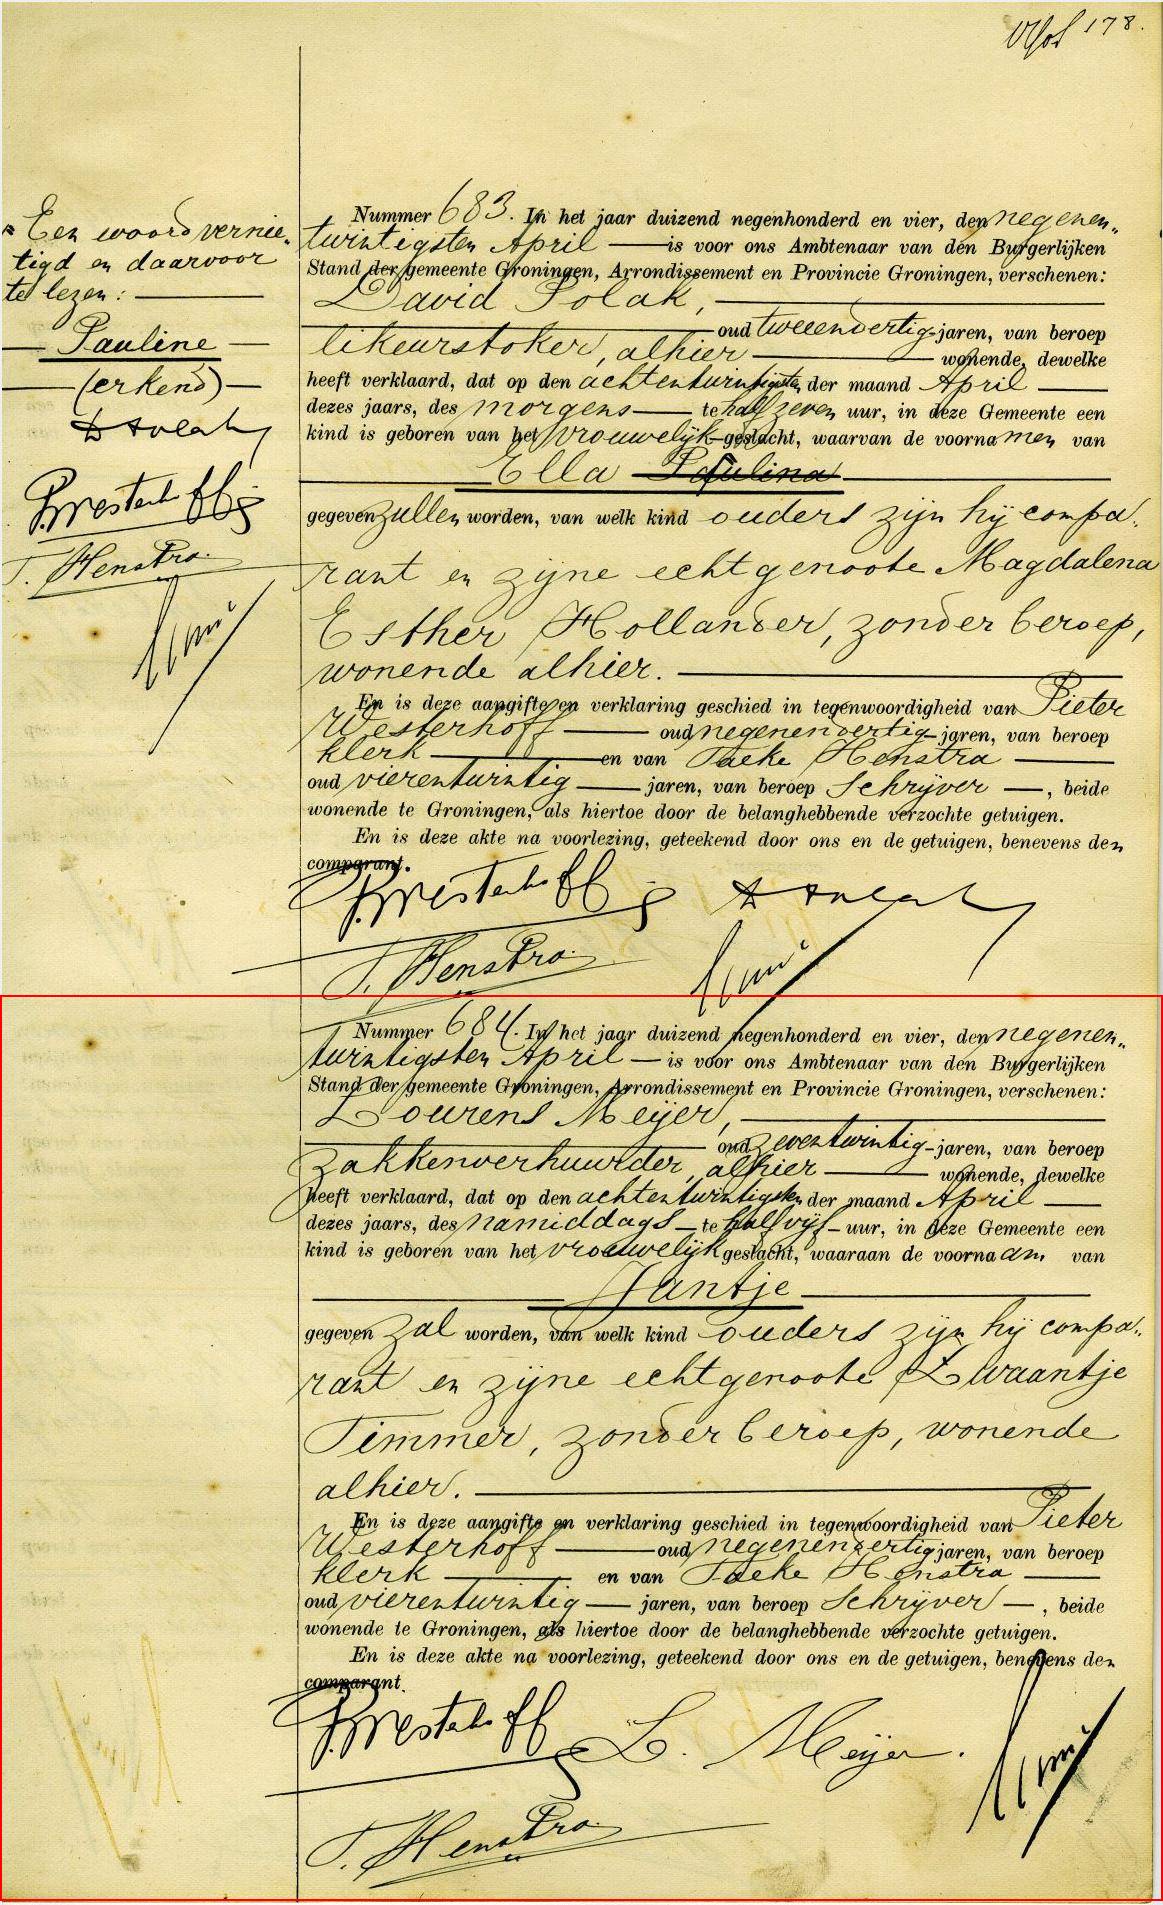 178.
Een woord vernie-
tigd en daarvoor
te lezen:
Pauline
(erkend)
D Polak
P. Westerhoff
T. Henstra
Nummer 683. In het jaar duizend negenhonderd en vier, den negenen-
twintigsten April — is voor ons Ambtenaar van den Burgerlijken
Stand der gemeente Groningen, Arrondissement en Provincie Groningen, verschenen:
David Polak,
oud tweeendertig jaren, van beroep
likeurstoker, alhier — wonende, dewelke
heeft verklaard, dat op den achtentwintigsten der maand April
dezes jaars, des morgens — te half zeven uur, in deze Gemeente een
kind is geboren van het vrouwelijk geslacht, waarvan de voornamen van
Ella Paulina
gegeven zullen worden, van welk kind ouders zijn hij compa-
rant en zijne echtgenoote Magdalena
Esther Hollander, zonder beroep,
wonende alhier.
En is deze aangifte en verklaring geschied in tegenwoordigheid van Pieter
Westerhoff — oud negenendertig jaren, van beroep
klerk — en van Taeke Henstra
oud vierentwintig — jaren, van beroep Schrijver —, beide
wonende te Groningen, als hiertoe door de belanghebbende verzochte getuigen.
En is deze akte na voorlezing, geteekend door ons en de getuigen, benevens den
comparant.
P. Westerhoff D Polak
T. Henstra
Nummer 684. In het jaar duizend negenhonderd en vier, den negenen-
twintigsten April — is voor ons Ambtenaar van den Burgerlijken
Stand der gemeente Groningen, Arrondissement en Provincie Groningen, verschenen:
Lourens Meijer,
oud zeventwintig jaren, van beroep
zakkenverhuurder, alhier — wonende, dewelke
heeft verklaard, dat op den achtentwintigsten der maand April
dezes jaars, des namiddags — te half vijf — uur, in deze Gemeente een
kind is geboren van het vrouwelijk geslacht, waaraan de voornaam van
Jantje
gegeven zal worden, van welk kind ouders zijn hij compa-
rant en zijne echtgenoote Zwaantje
Timmer, zonder beroep, wonende
alhier.
En is deze aangifte en verklaring geschied in tegenwoordigheid van Pieter
Westerhoff — oud negenendertig jaren, van beroep
klerk — en van Taeke Henstra
oud vierentwintig — jaren, van beroep Schrijver —, beide
wonende te Groningen, als hiertoe door de belanghebbende verzochte getuigen.
En is deze akte na voorlezing, geteekend door ons en de getuigen, benevens den
comparant.
P. Westerhoff L. Meijer.
T. Henstra